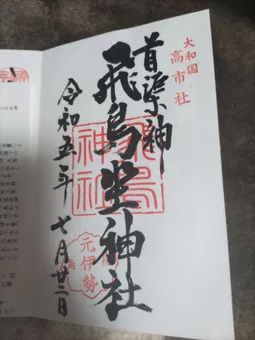 大和国
高市社
首渠神
飛鳥坐神社
飛鳥
神社
元伊勢
令和五年 七月廿二日